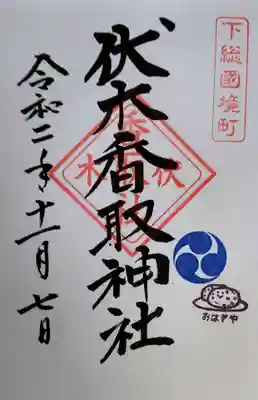 下総國境町
伏木香取神社
令和二年十一月七日
おはぎや